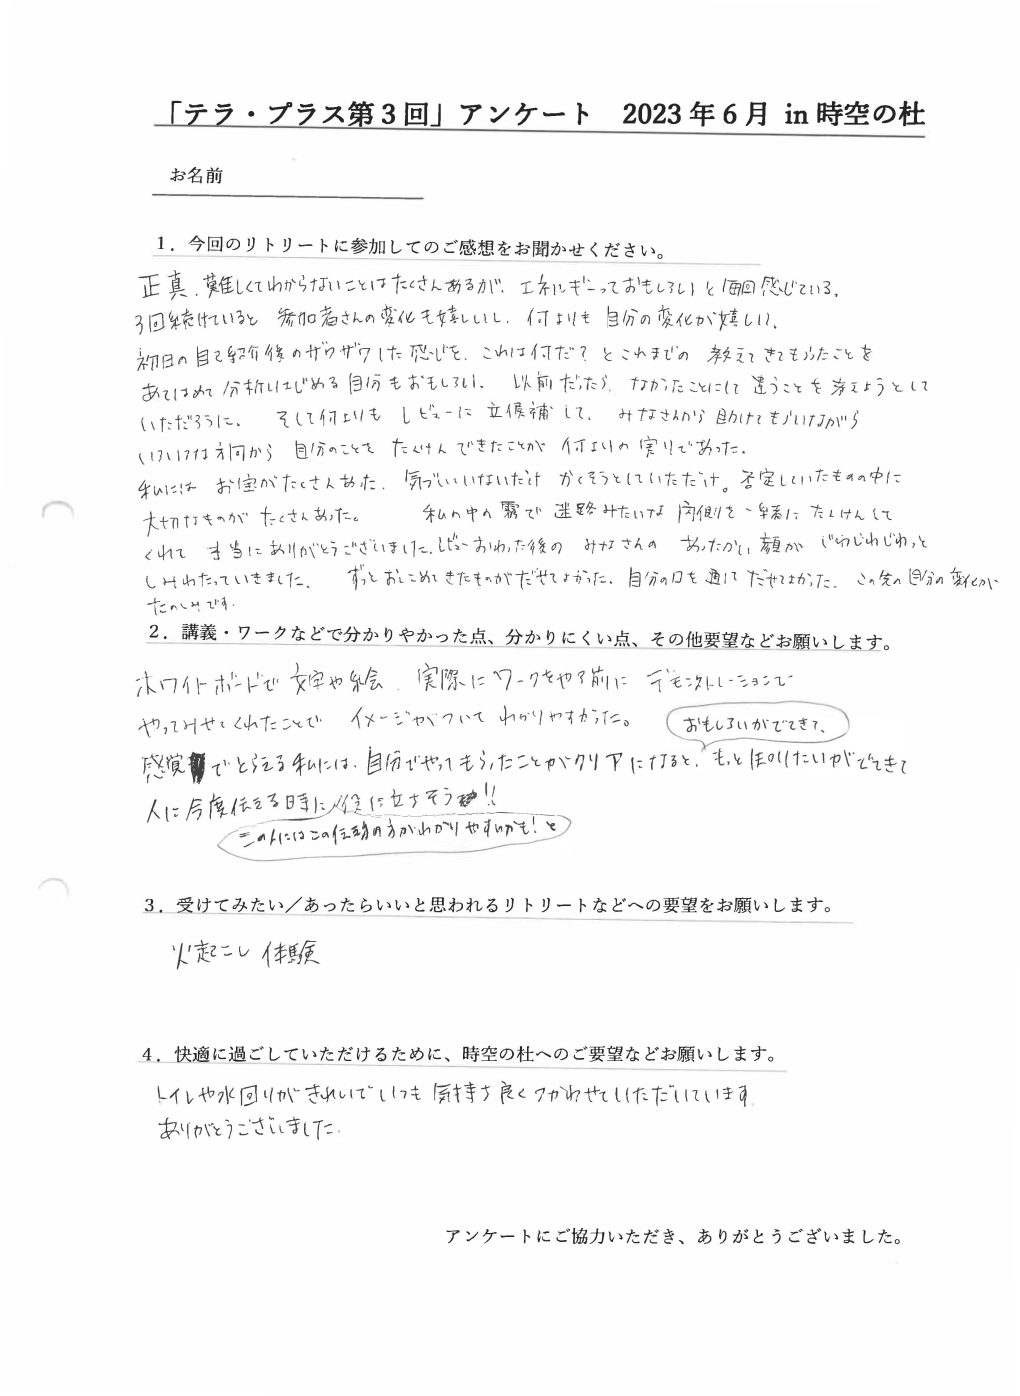 「テラ・プラス第3回」アンケート　2023年6月 in 時空の杜
お名前
1．今回のリトリートに参加してのご感想をお聞かせください。
正真、難しくてわからないことはたくさんあるが、エネルギーっておもしろい と毎回感じている。
3回続けていると 参加者さんの変化も嬉しいし、何よりも 自分の変化が嬉しい、
初日の自己紹介後のザワザワした感じを、これは何だ？ とこれまでの 教えてきてもらたことを
あてはめて分析しはじめる自分もおもしろい、以前だったら、なかったことにして違うことを考えようとして
いただろうに、そして何よりも レビューに立候補して、みなさんから助けてもらいながら
いろいろな方向から 自分のことを たんけんできたことが 何よりの実りであった。
私には お宝がたくさんあった、気づいていないだけ かくそうとしていただけ。否定していたものの中に
大切なものが たくさんあった。 私の中の霧で迷路みたいな内側を一緒に たんけんして
くれて 本当にありがとうございました、レビューおわった後の みなさんの あったかい顔が じわじわじわっと
しみわたっていきました、 ずっとおしこめてきたものがだせてよかった、自分の口を通してだせてよかった、この先の自分の変化が
たのしみです．
2．講義・ワークなどで分かりやかった点、分かりにくい点、その他要望などお願いします。
ホワイトボードで 文字や絵、実際にワークをやる前に デモンストレーションで
やってみせてくれたことで イメージがついて わかりやすかった。
おもしろいがでてきて、
感覚でとらえる私には、自分でやってもらったことがクリアになると、もっとほりけたいがでてきて
人に今度伝える時に役に立ちそう!!
この人にはこの伝え方の方がわかりやすいかも！と
3．受けてみたい／あったらいいと思われるリトリートなどへの要望をお願いします。
火起こし体験
4．快適に過ごしていただけるために、時空の杜へのご要望などお願いします。
トイレや水回りがきれいでいつも気持ち良くつかわせていただいています
ありがとうございました．
アンケートにご協力いただき、ありがとうございました。